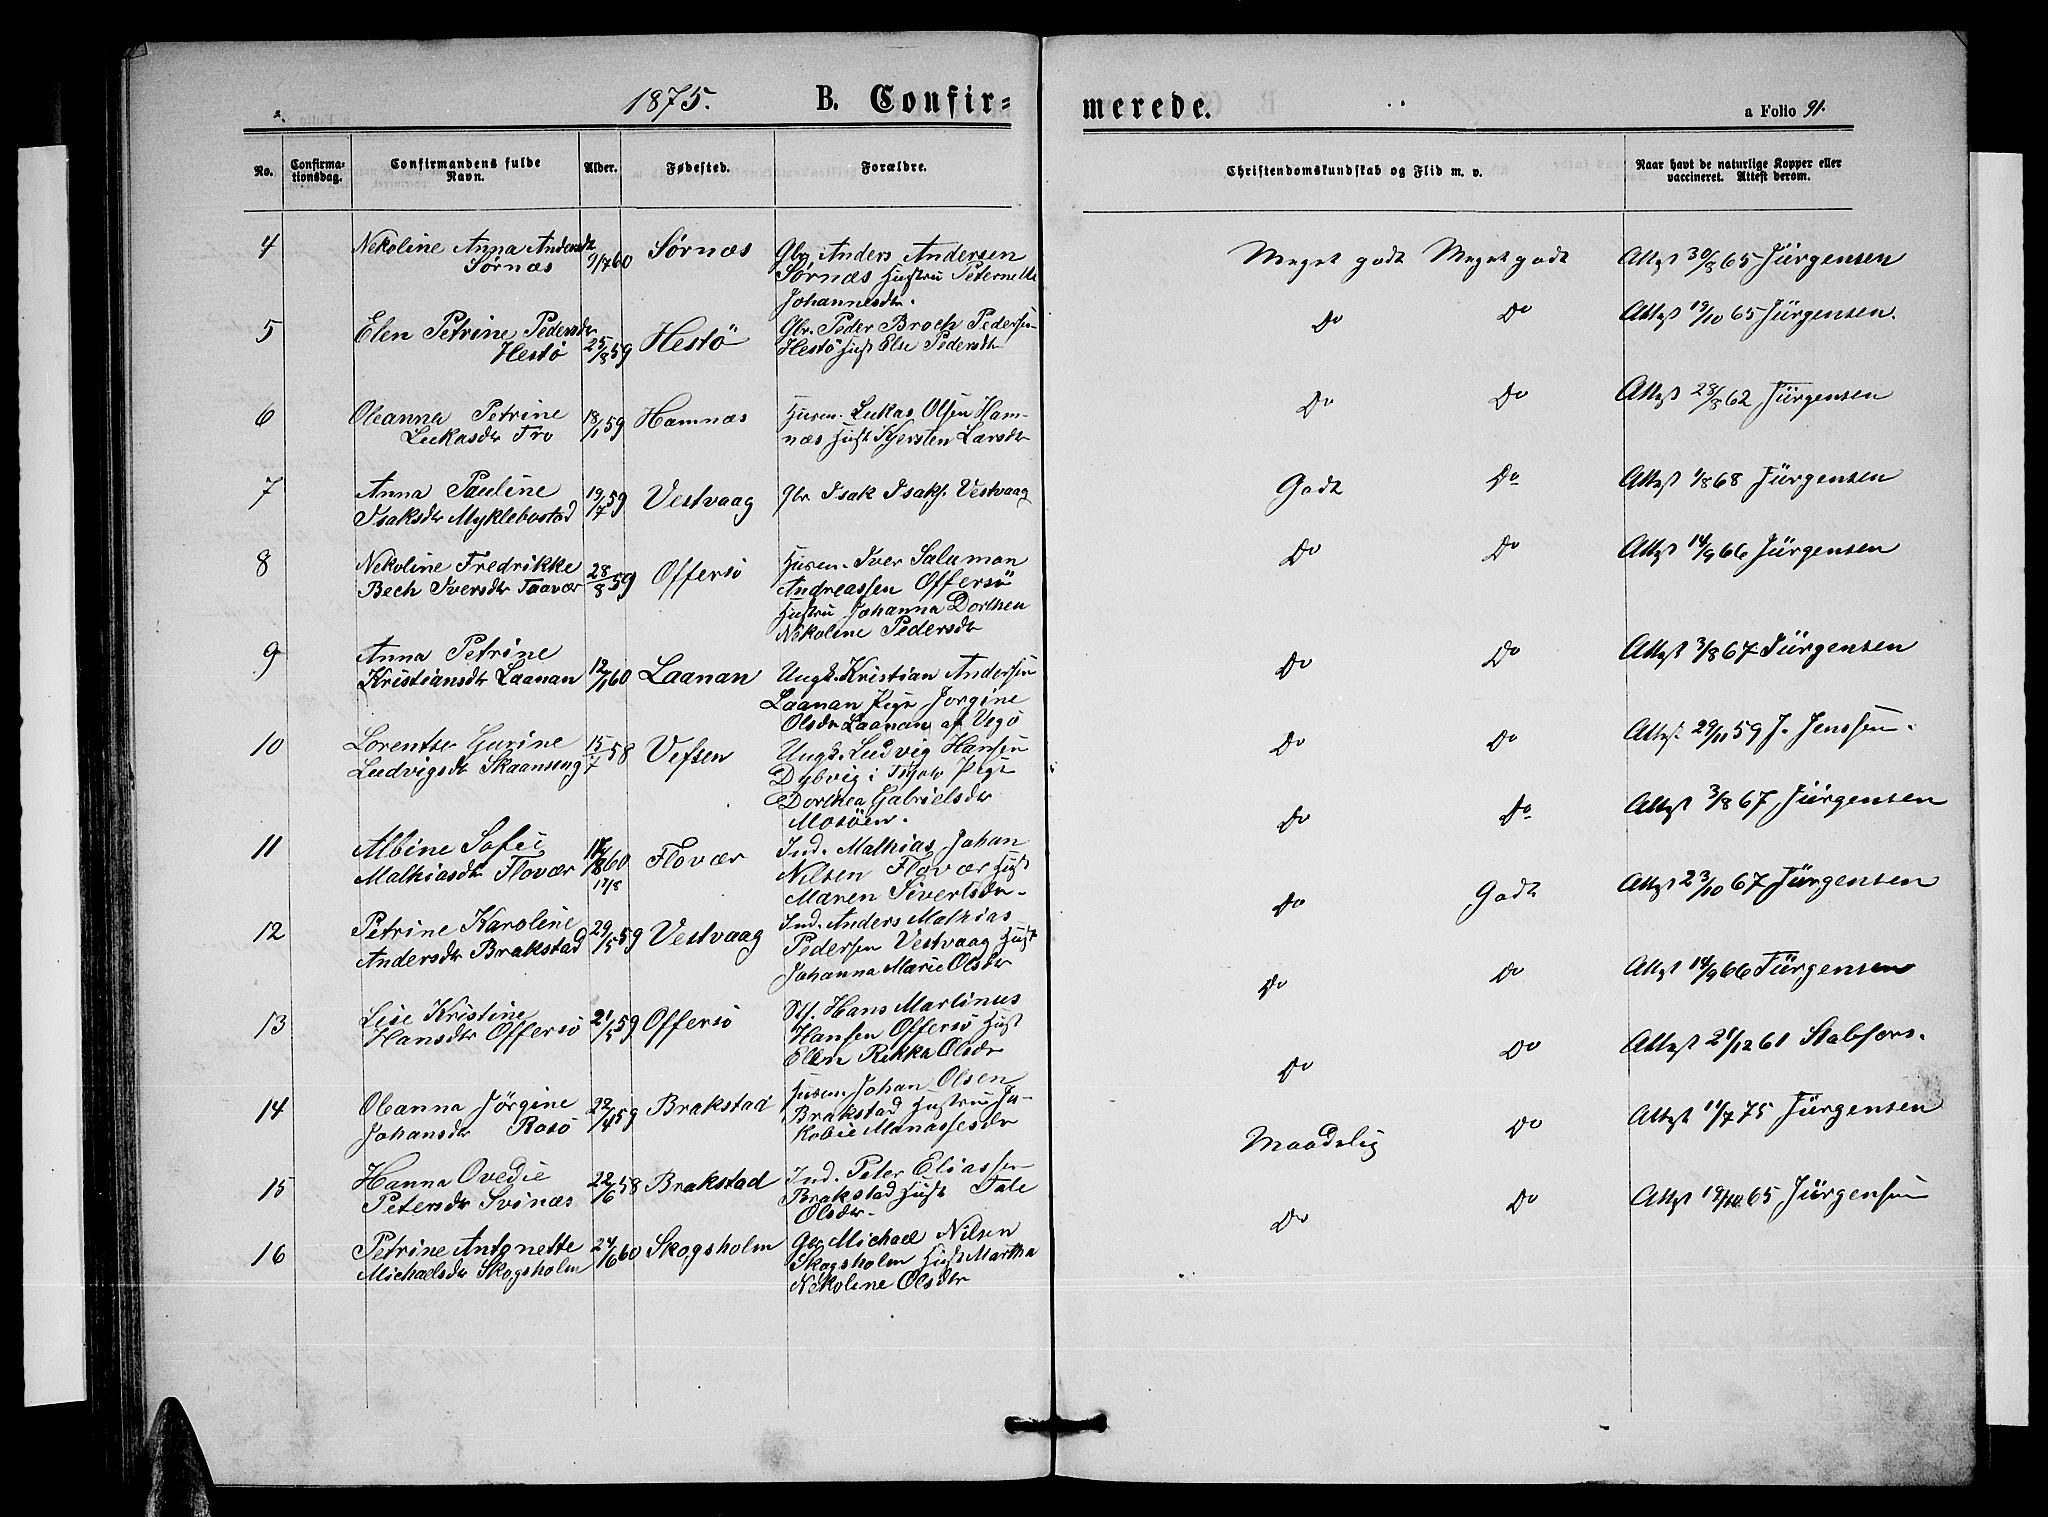 1875. B. Confir= merede. a Folio 91.
No. Confirma- Confirmandens fulde Alder. Fødested. Forældre. Christendomskundskab og Flid m. v. Naar havt de naturlige Kopper eller
tionsdag. Navn. vaccineret. Attest derom.
4 Nekoline Anna Andersdr 9/7 60 Sørnæs Gbr Anders Andersen Meget godt Meget godt Attest 30/8 65 Jürgensen
Sørnæs Sørnæs Hustru Peternelle
Johannesdr.
5 Elen Petrine Pedersdr 25/8 59 Hestö Gbr. Peder Broch Pedersen Do Do Attest 19/10 65 Jürgensen.
Hestö Hestö Hust Else Pedersdr
6 Oleanna Petrine 18/1 59 Hamnæs Husm. Lukas Olsen Ham- Do Do Attest 28/8 62 Jürgensen
Lukasdr Tro næs Hust Kjersten Larsdr
7 Anna Pauline 19/7 59 Vestvaag Gbr Isak Isaks. Vestvaag Godt Do Attest 1/8 68 Jürgensen
Isaksdr Myklebostad
8 Nekoline Fredrikke 28/8 59 Offersö Husm. Iver Salamon Do Do Attest 14/9 66 Jürgensen
Bech Iversdr Taavær Andreassen Offersö
Hustru Johanna Dorthea
Nikoline Pedersdr
9 Anna Petrine 12/1 60 Laanan Ungk. Kristian Andersen Do Do Attest 3/8 67 Jürgensen
Kristiansdr Laanan Laanan Pige Jorgine
Olsdr Laanan af Vegö
10 Lorentse Gurine 15/7 58 Vefsen Ungk. Ludvig Hansen Do Do Attest. 29/11 59 J. Jenssen.
Ludvigsdr Skaanseng Dybvig i Tjøtø Pige
Dorthea Gabrielsdr
Mosöen.
11 Albine Sofie 17/8 60 Flovær Ind. Mathias Johan Do Do Attest 3/8 67 Jürgensen
Mathiasdr Flovær 17/8 Nilsen Flovær Hust
Maren Sivertsdr
12 Petrine Karoline 29/5 59 Vestvaag Ind. Anders Mathias Do Godt Attest 23/10 67 Jürgensen
Andersdr Brakstad Pedersen Vestvaag Hust
Johanna Marie Olsdr
13 Lise Kristine 21/5 59 Offersö Hans Martinus Do Do Attest 14/9 66 Jürgensen
Hansdr Offersö Hansen Offersö Hust
Elen Rikka Olsdr
14 Oleanna Jörgine 22/4 59 Brakstad Husm Johan Olsen Do Do Attest 21/12 61 Stabfors.
Johansdr Rosö Brakstad Hustru Ja-
kobie Manassesdr
15 Hanna Ovedie 22/6 58 Brakstad Ind. Peter Eliassen Maadelig Do Attest 11/7 75 Jürgensen
Petersdr Svinæs Brakstad Hust Tale
Olsdr.
16 Petrine Antonette 24/6 60 Skogsholm Gbr Michael Nilsen Do Do Attest 19/10 65 Jürgensen
Michaelsdr Skogsholm Skogsholm Hust Martha
Nekoline Olsdr